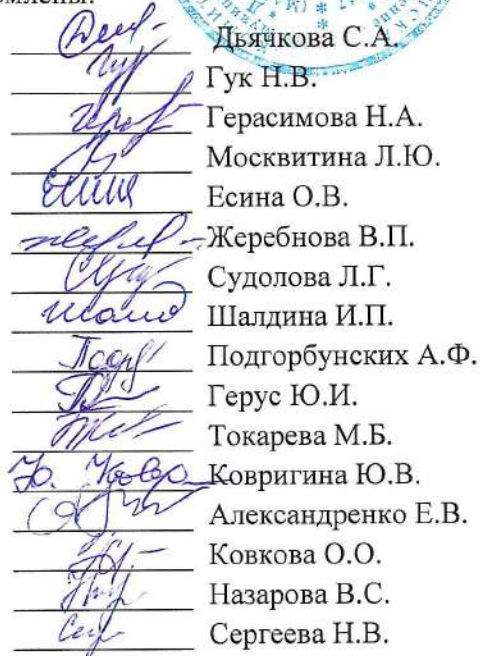 Дьячкова С.А.
Гук Н.В.
Герасимова Н.А.
Москвитина Л.Ю.
Есина О.В.
Жеребнова В.П.
Судолова Л.Г.
Шалдина И.П.
Подгорбунских А.Ф.
Герус Ю.И.
Токарева М.Б.
Ковригина Ю.В.
Александренко Е.В.
Ковкова О.О.
Назарова В.С.
Сергеева Н.В.